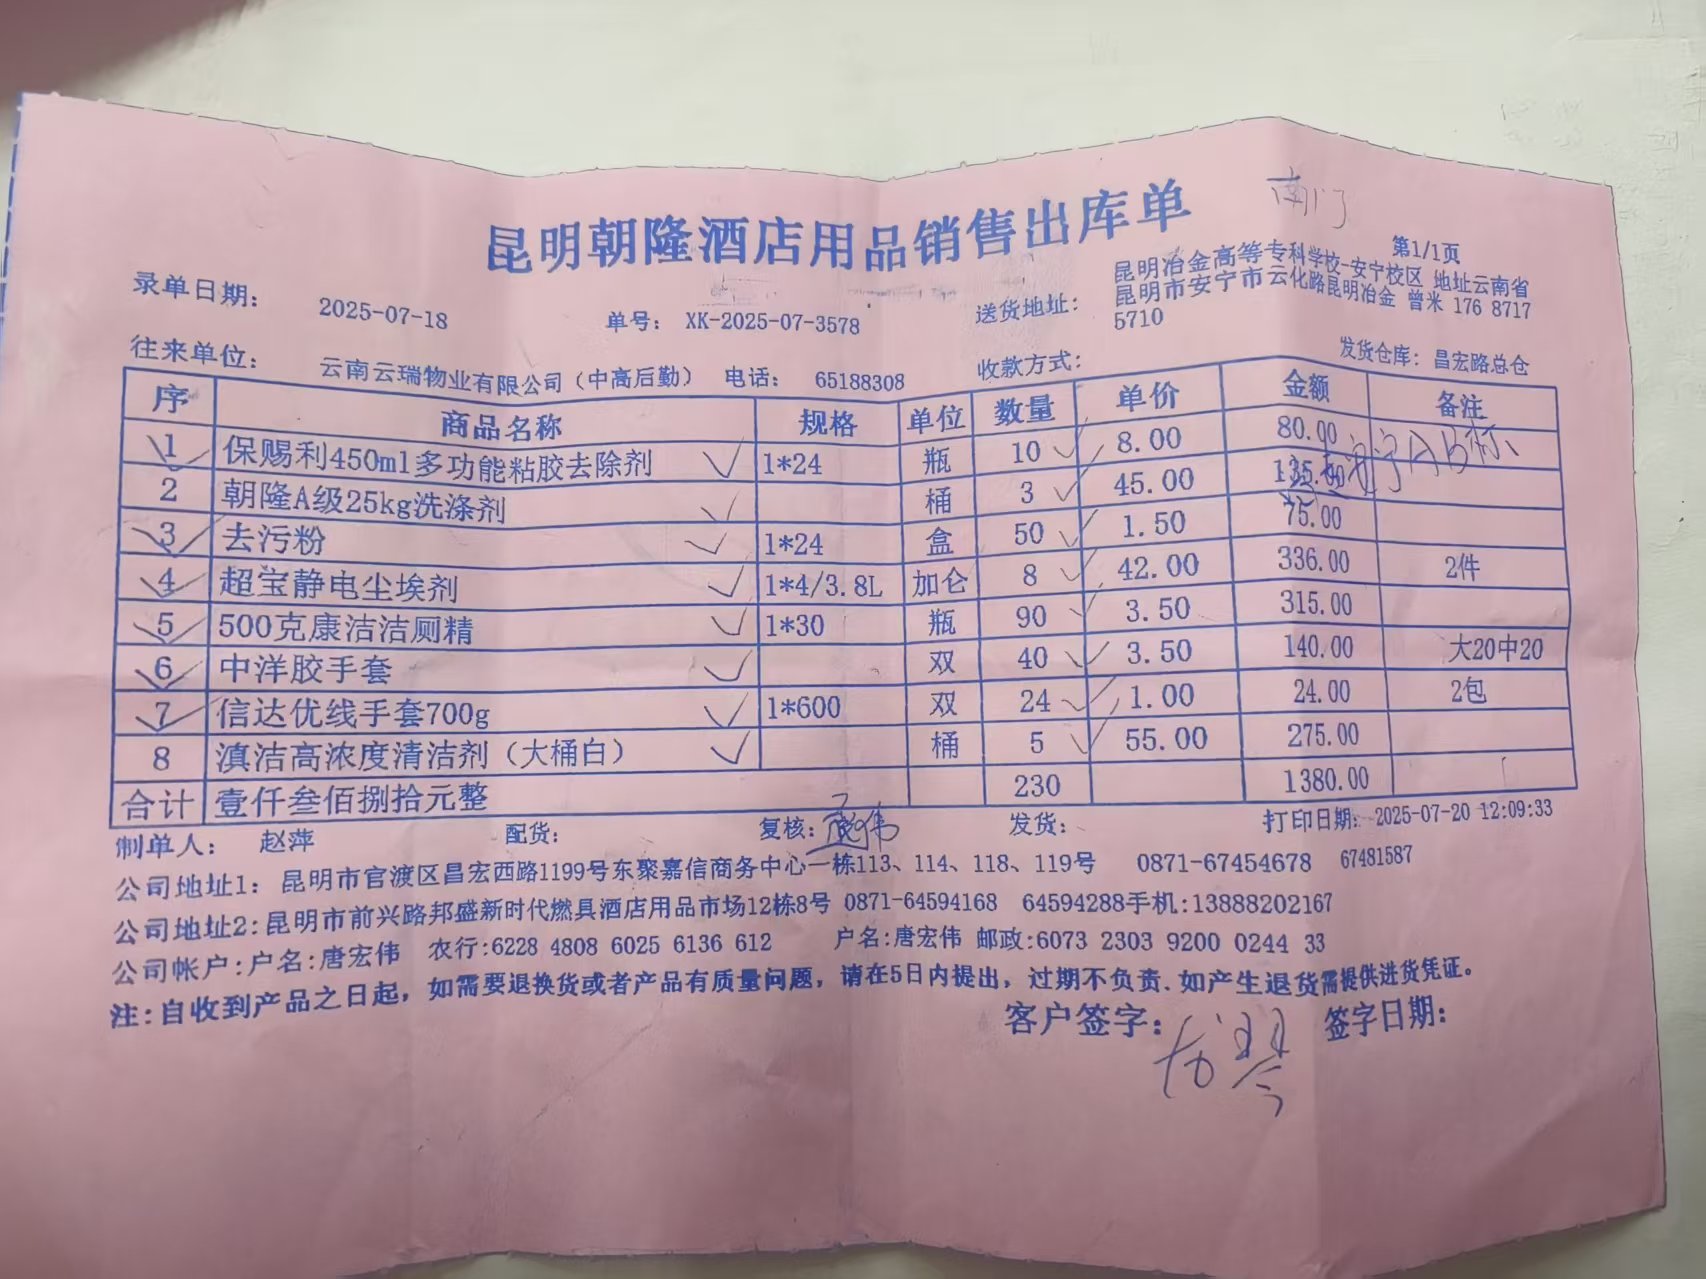 南门
昆明朝隆酒店用品销售出库单
第1/1页
录单日期： 2025-07-18 单号： XK-2025-07-3578 送货地址： 昆明冶金高等专科学校-安宁校区 地址云南省
昆明市安宁市云化路昆明冶金 曾米 176 8717
5710
往来单位： 云南云瑞物业有限公司（中高后勤） 电话： 65188308 收款方式： 发货仓库： 昌宏路总仓
序 商品名称 规格 单位 数量 单价 金额 备注
1 保赐利450ml多功能粘胶去除剂 1*24 瓶 10 8.00 80.00
2 朝隆A级25kg洗涤剂 桶 3 45.00 135.00
3 去污粉 1*24 盒 50 1.50 75.00
4 超宝静电尘埃剂 1*4/3.8L 加仑 8 42.00 336.00 2件
5 500克康洁洁厕精 1*30 瓶 90 3.50 315.00
6 中洋胶手套 双 40 3.50 140.00 大20中20
7 信达优线手套700g 1*600 双 24 1.00 24.00 2包
8 滇洁高浓度清洁剂（大桶白） 桶 5 55.00 275.00
合计 壹仟叁佰捌拾元整 230 1380.00
制单人： 赵萍 配货： 复核： 发货： 打印日期： 2025-07-20 12:09:33
公司地址1： 昆明市官渡区昌宏西路1199号东聚嘉信商务中心一栋113、114、118、119号 0871-67454678 67481587
公司地址2:昆明市前兴路邦盛新时代燃具酒店用品市场12栋8号 0871-64594168 64594288手机:13888202167
公司帐户:户名:唐宏伟 农行:6228 4808 6025 6136 612 户名:唐宏伟 邮政:6073 2303 9200 0244 33
注:自收到产品之日起，如需要退换货或者产品有质量问题，请在5日内提出，过期不负责.如产生退货需提供进货凭证。
客户签字： 签字日期：